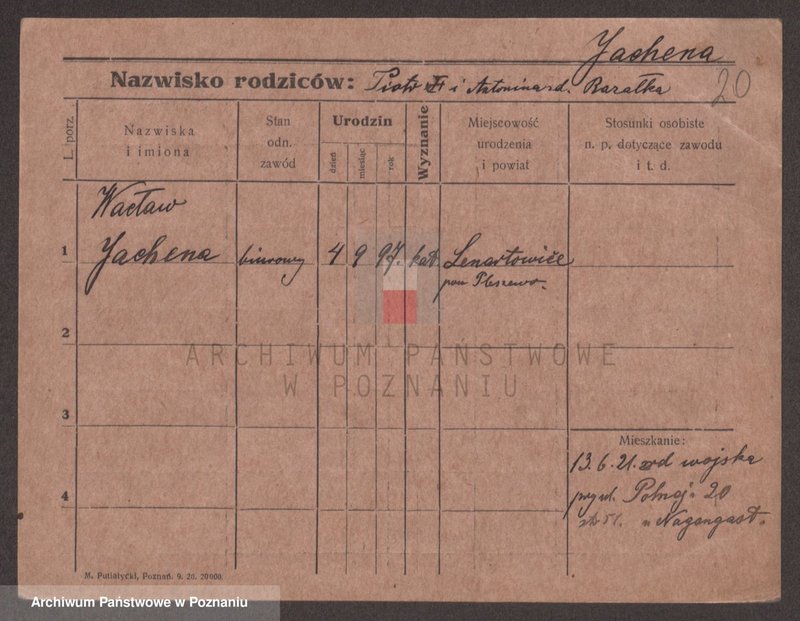 Jachena
Nazwisko rodziców: Piotr i Antonina rd. Barałka
20
L. porz.
Nazwiska
i imiona
Stan
odn.
zawód
Urodzin
dzień
miesiąc
rok
Wyznanie
Miejscowość
urodzenia
i powiat
Stosunki osobiste
n. p. dotyczące zawodu
i t. d.
Wacław
1 Jachena biurowy 4 9 97. kat. Lenartowice
pow Pleszewo.
2
ARCHIWUM PAŃSTWOWE
W POZNANIU
3
Mieszkanie:
13.6.21. od wojska
4
przy ul. Polnej 20
u Nagengast.
M. Putiatycki, Poznań. 9. 20. 20000.
Archiwum Państwowe w Poznaniu